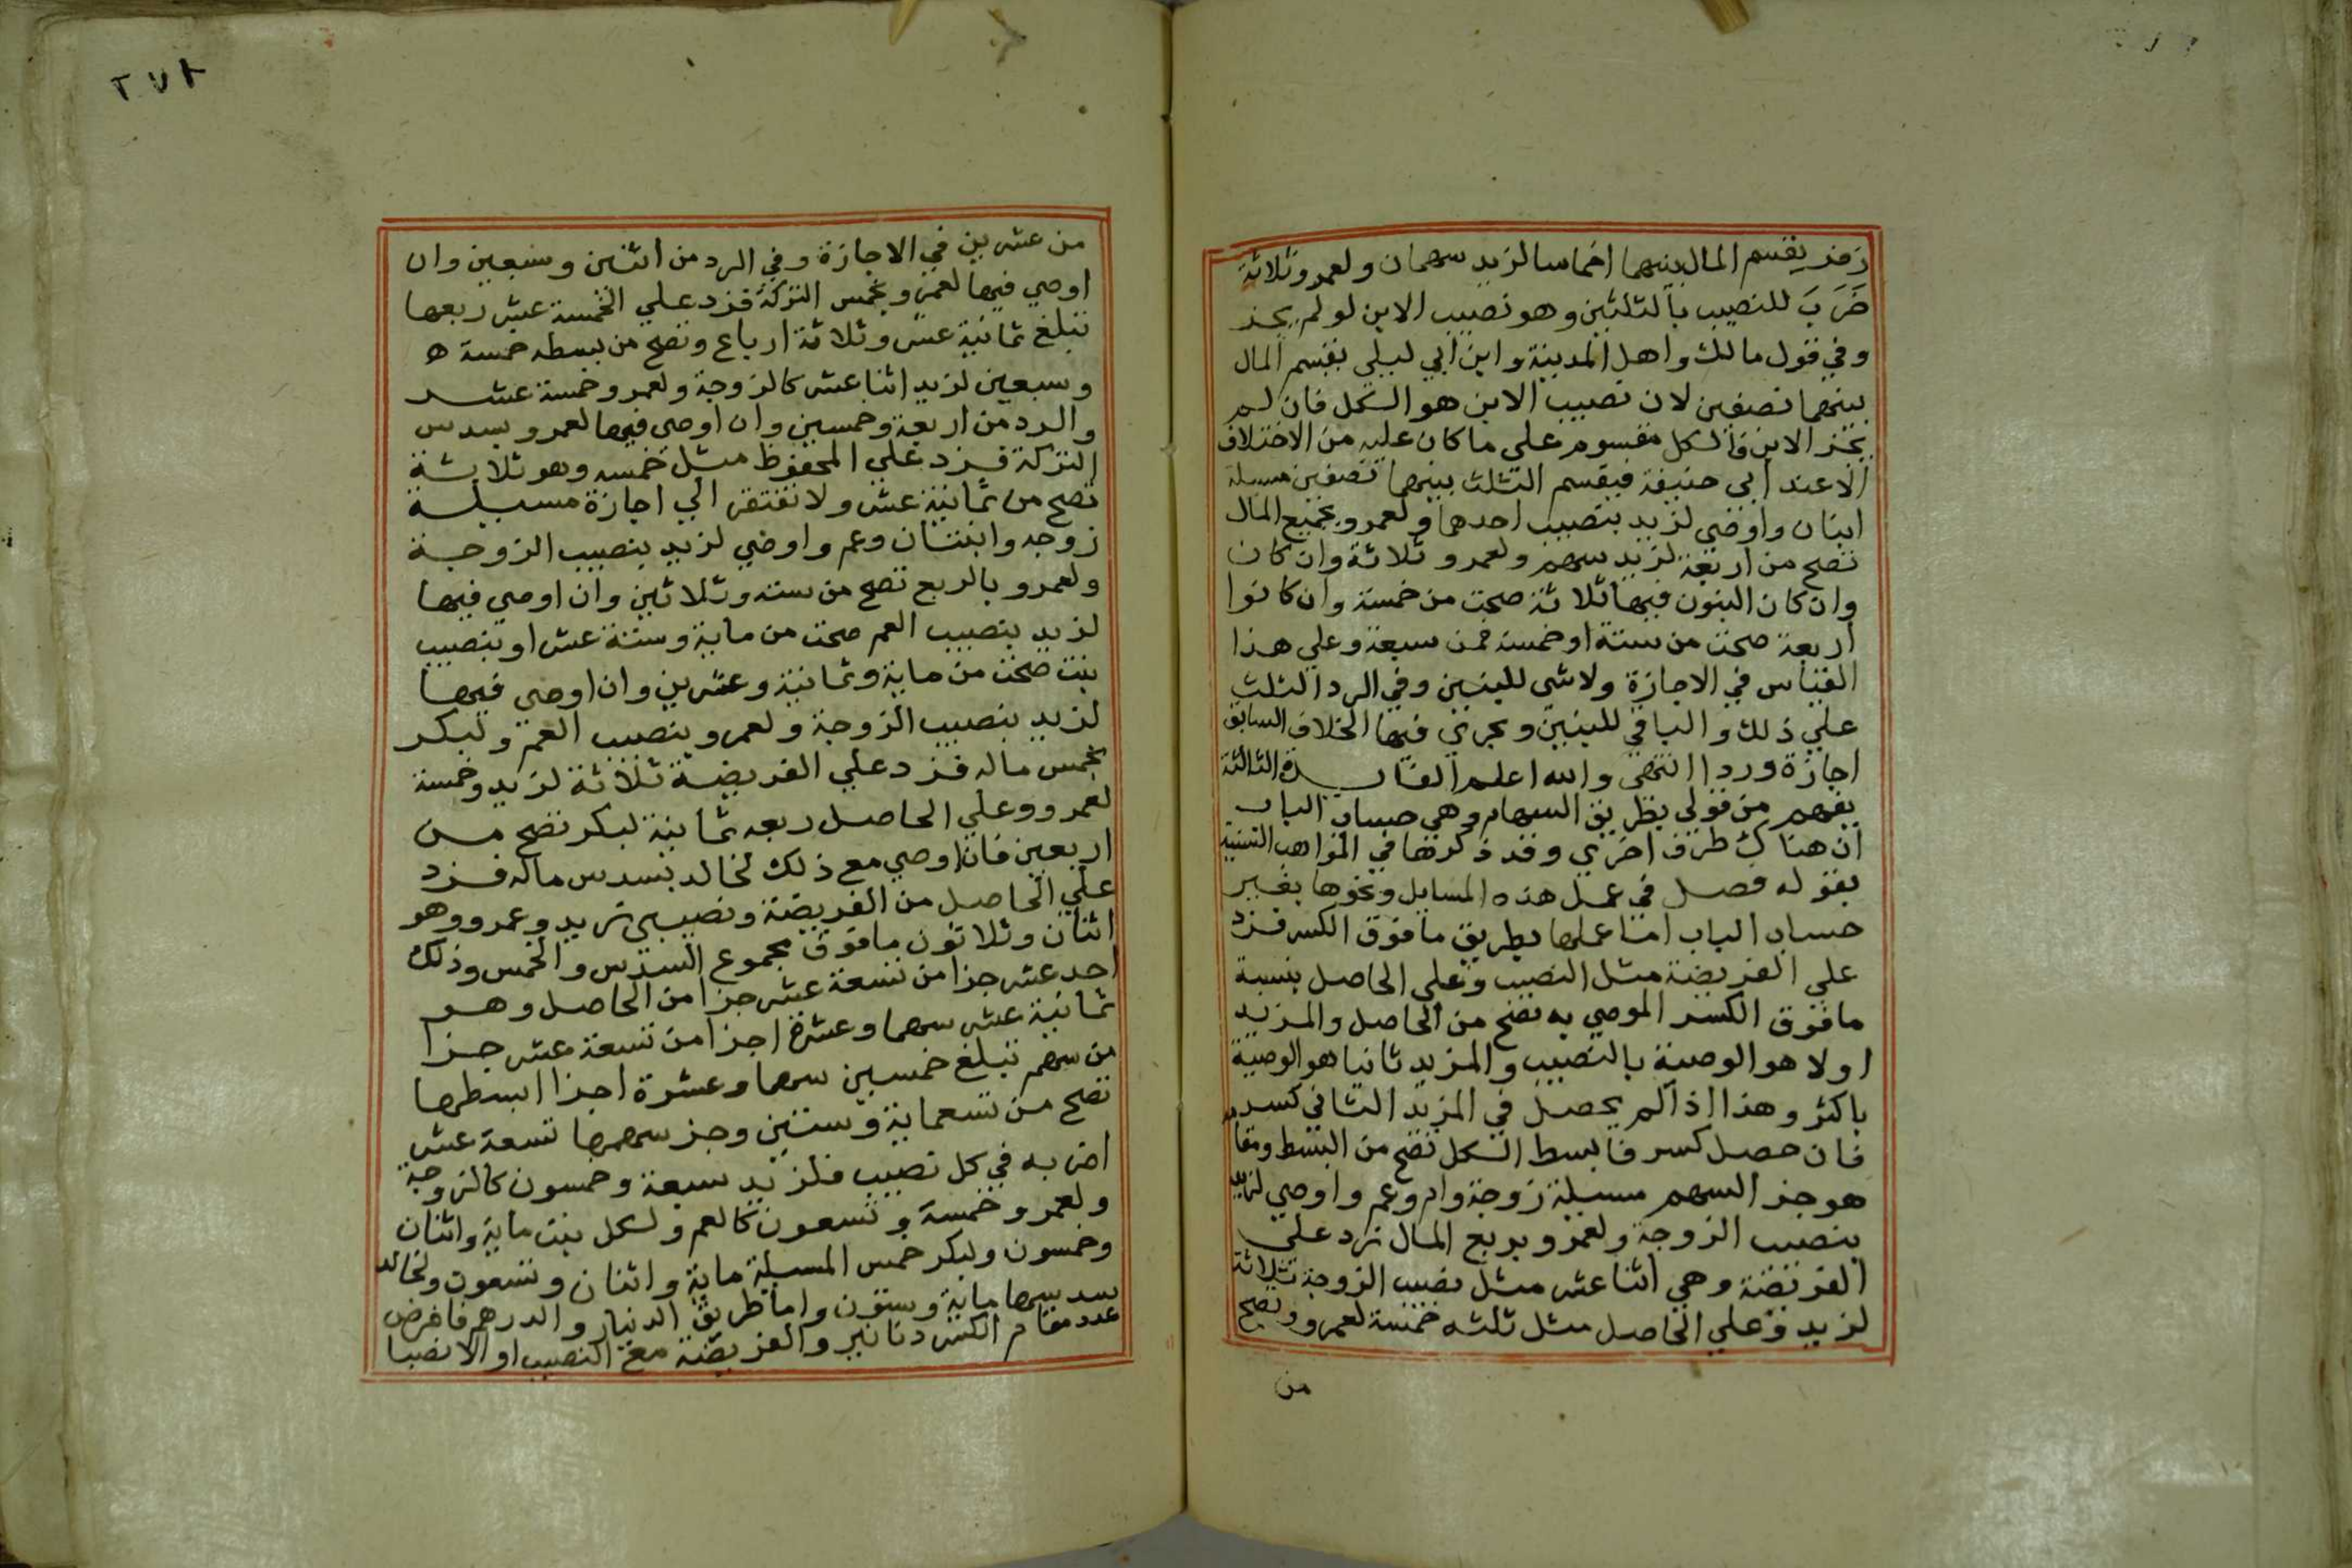 زفر يقسم المال بينهما اخماسا لزيد سهمان ولعمرو ثلاثة
ضرب للنصيب بالثلثين وهو نصيب الابن لو لم يجز
وفي قول مالك واهل المدينة وابن ابي ليلى يقسم المال
بينهما نصفين لان نصيب الابن هو الكل فان لم
يجز الابن فالكل مقسوم علي ما كان عليه من الاختلاف
الا عند ابي حنيفة فيقسم الثلث بينهما نصفين مسيلة
ابنان واوصي لزيد بنصيب احدهما ولعمرو بجميع المال
تصح من اربعة لزيد سهم ولعمرو ثلاثة وان كان
وان كان البنون فيها ثلاثة صحت من خمسة وان كانوا
اربعة صحت من ستة او خمسة فمن سبعة وعلي هذا
القياس في الاجازة ولا شي للبنين وفي الرد الثلث
علي ذلك والباقي للبنين ويجري فيها الخلاف السابق
اجازة وردا انتهى والله اعلم الفايدة الثالثة
يفهم من قولي بطريق السهام وهي حساب الباب
ان هناك طرق اخري وقد ذكرتها في المواهب السنية
بقوله فصل في عمل هذه المسايل ونحوها بغير
حساب الباب اما عملها بطريق ما فوق الكسر فزد
علي الفريضة مثل النصيب وعلي الحاصل بنسبة
ما فوق الكسر الموصي به تصح من الحاصل والمزيد
اولا هو الوصية بالنصيب والمزيد ثانيا هو الوصية
باكثر وهذا اذا لم يحصل في المزيد الثاني كسر
فان حصل كسر فابسط الكل تصح من البسط ومقامه
هو جز السهم مسيلة زوجة وام وعم واوصي لزيد
بنصيب الزوجة ولعمرو بربع المال زد علي
الفريضة وهي اثنا عشر مثل نصيب الزوجة ثلاثة
لزيد وعلي الحاصل مثل ثلثه خمسة لعمرو وتصح
من
٢٧٨
من عشرين في الاجازة وفي الرد من اثنين وسبعين وان
اوصي فيها لعمرو بخمس التركة فزد علي الخمسة عشر ربعها
تبلغ ثمانية عشر وثلاثة ارباع وتصح من بسطه خمسة ه
وسبعين لزيد اثنا عشر كالزوجة ولعمرو خمسة عشر
والرد من اربعة وخمسين وان اوصي فيها لعمرو بسدس
التركة فزد علي المحفوظ مثل خمسه وهو ثلاثة
تصح من ثمانية عشر ولا تفتقر الي اجازة مسيلة
زوجه وابنتان وعم واوصي لزيد بنصيب الزوجة
ولعمرو بالربع تصح من ستة وثلاثين وان اوصي فيها
لزيد بنصيب العم صحت من ماية وستة عشر او بنصيب
بنت صحت من ماية وثمانية وعشرين وان اوصي فيها
لزيد بنصيب الزوجة ولعمرو بنصيب العم ولبكر
بخمس ماله فزد علي الفريضة ثلاثة لزيد وخمسة
لعمرو وعلي الحاصل ربعه ثمانية لبكر تصح من
اربعين فان اوصي مع ذلك لخالد بسدس ماله فزد
علي الحاصل من الفريضة ونصيبي زيد وعمرو وهو
اثنان وثلاثون ما فوق مجموع السدس والخمس وذلك
احد عشر جزا من تسعة عشر جزا من الحاصل وهو
ثمانية عشر سهما وعشرة اجزا من تسعة عشر جزا
من سهم تبلغ خمسين سهما وعشرة اجزا ابسطها
تصح من تسعماية وستين وجز سهمها تسعة عشر
اضربه في كل نصيب فلزيد سبعة وخمسون كالزوجة
ولعمرو خمسة وتسعون كالعم ولكل بنت ماية واثنان
وخمسون ولبكر خمس المسيلة ماية واثنان وتسعون ولخالد
سدسها ماية وستون واما طريق الدينار والدرهم فافرض
عدد مقام الكسر دنانير والفريضة مع النصيب او الانصبا